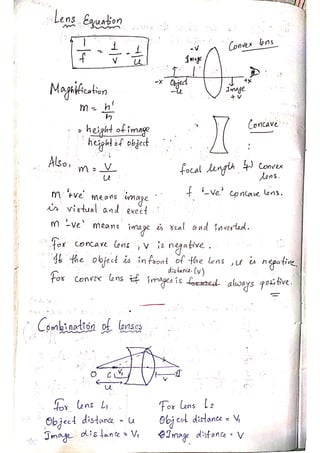 Lens Equation
1/f = 1/v - 1/u
-v
Convex lens
Image
-x Object +x
-u Image
+v
Magnification
m = h'/h
= height of image
height of object
Concave
Also, m = v/u
focal length Convex
lens.
f '-ve' concave lens.
m '+ve' means image
is virtual and erect
m '-ve' means image is real and inverted.
For concave lens, v is negative.
If the object is infront of the lens, u is negative
distance (v)
For convex lens if images is formed always positive.
Combination of lenses
O C V₁ I
u v
For lens L₁ For Lens L₂
Object distance = u Object distance = V₁
Image distance = V₁ Image distance = V